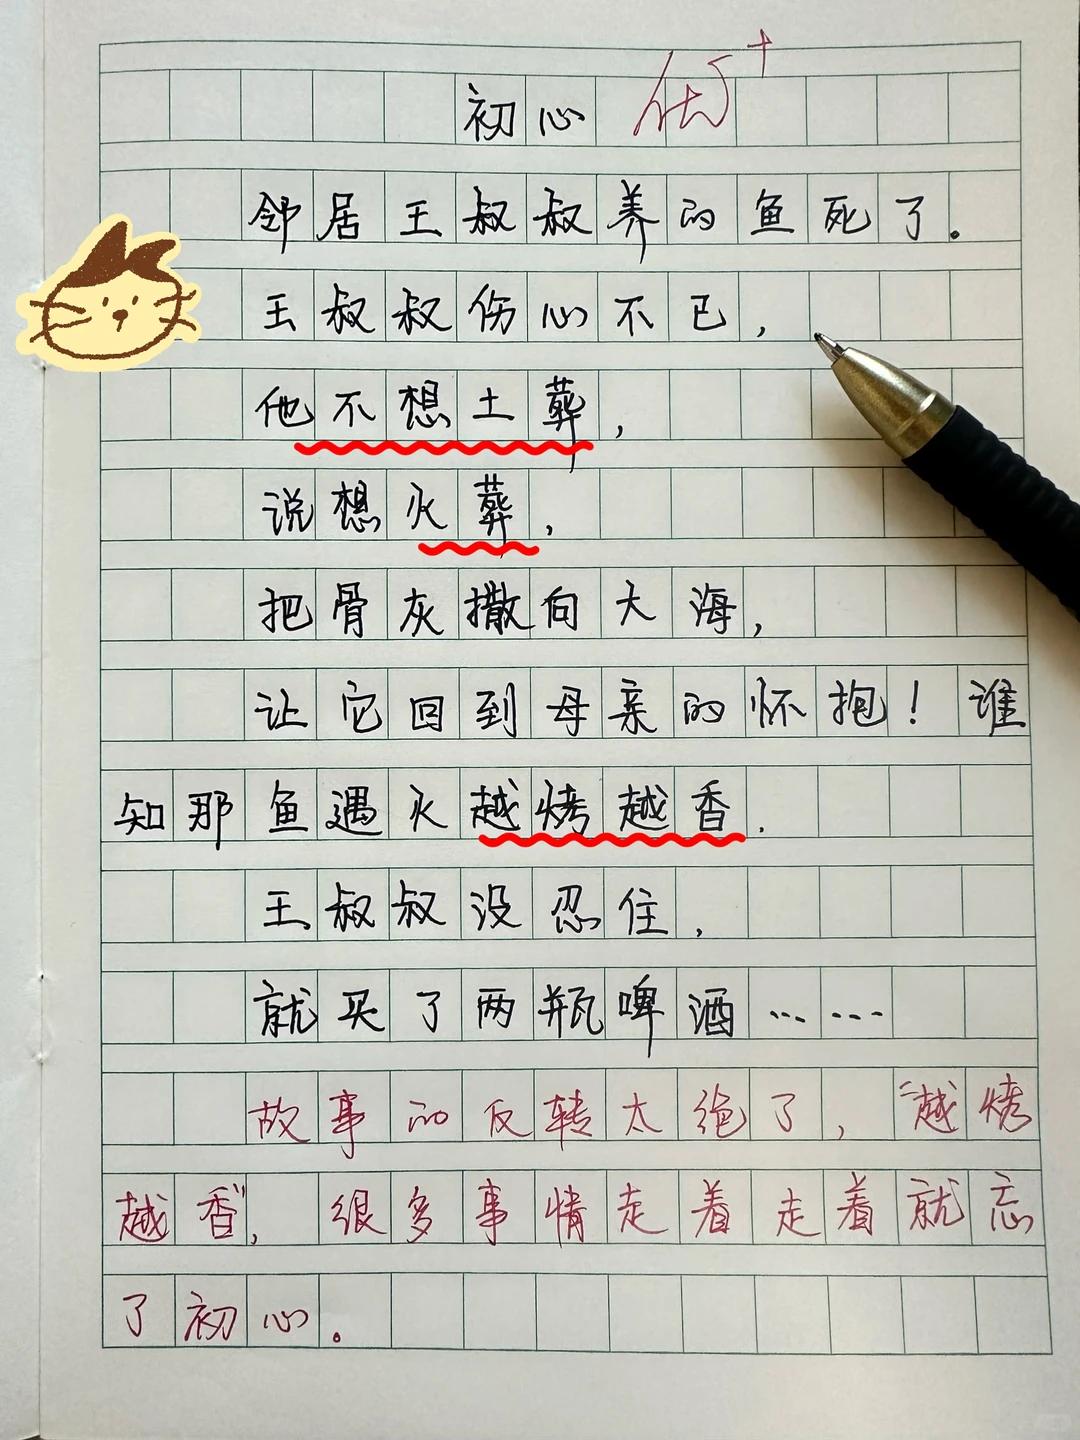 初心 优+
邻居王叔叔养的鱼死了。
王叔叔伤心不已，
他不想土葬，
说想火葬，
把骨灰撒向大海，
让它回到母亲的怀抱！谁
知那鱼遇火越烤越香.
王叔叔没忍住，
就买了两瓶啤酒……
故事的反转太绝了，“越烤
越香”，很多事情走着走着就忘
了初心。